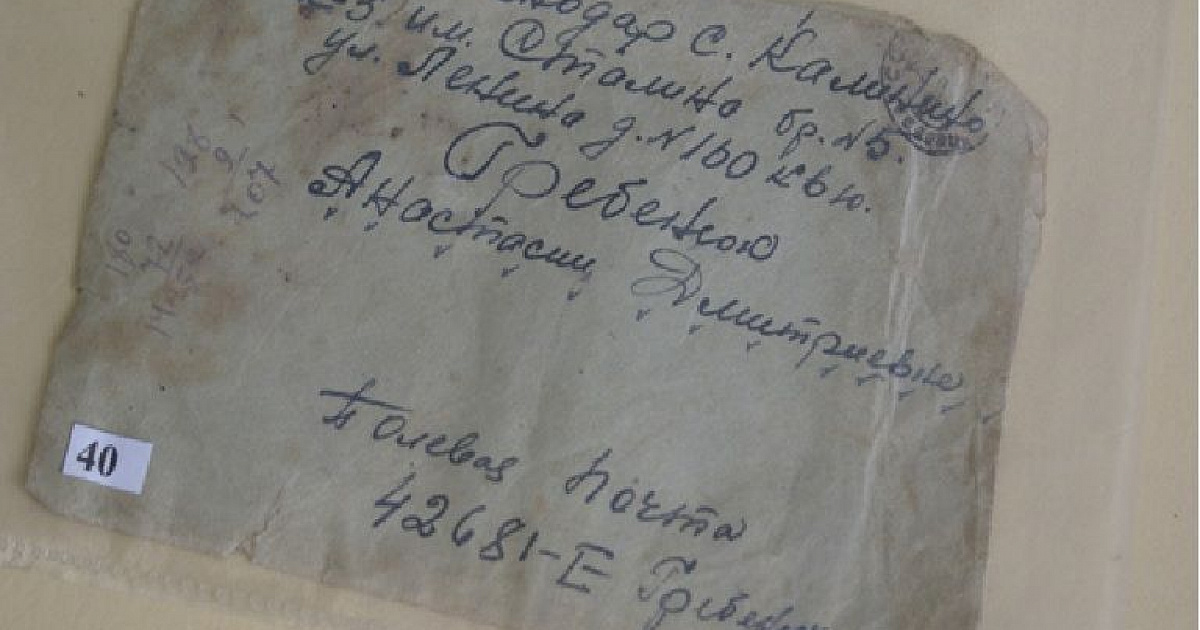 нодар с. Калинино
им. Сталина бр. №5.
ул. Ленина д. №160 кв ю.
Гребенюю
Анастасии Дмитриевне
Полевая почта
42681-Е Гребеню
40
126
9
207
160
12